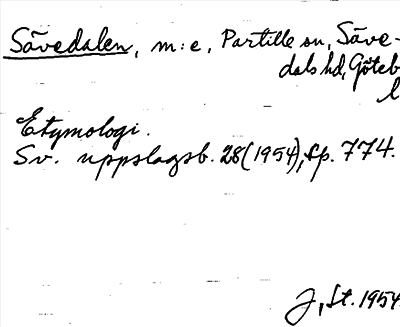 Sävedalen, m:e, Partille sn, Säve-
dals hd, Göteb
l
Etymologi.
Sv. uppslagsb. 28 (1954), sp. 774.
J, St. 1954